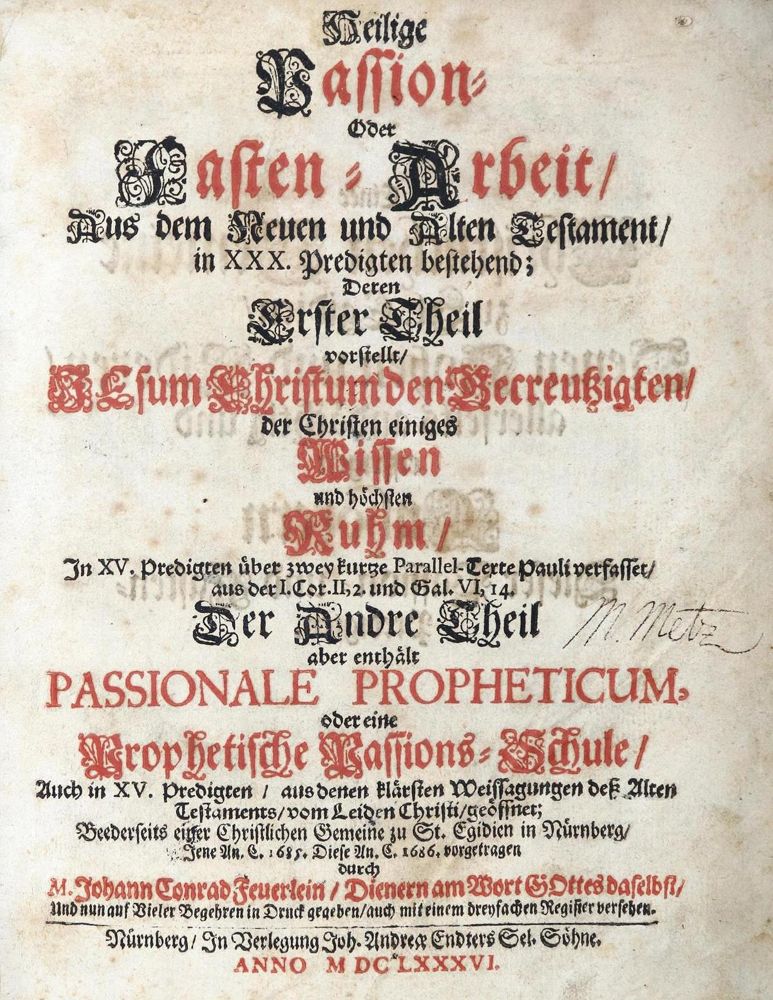 Heilige
Passion-
Oder
Fasten-Arbeit/
Aus dem Neuen und Alten Testament/
in XXX. Predigten bestehend;
Deren
Erster Theil
vorstellt/
JEsum Christum den Gecreutzigten/
der Christen einiges
Wissen
und höchsten
Ruhm/
In XV. Predigten über zwey kurtze Parallel-Texte Pauli verfasset/
aus der I. Cor. II, 2. und Gal. VI, 14.
Der Andre Theil
M. Metz
aber enthält
PASSIONALE PROPHETICUM,
oder eine
Prophetische Passions-Schule/
Auch in XV. Predigten/ aus denen klärsten Weissagungen deß Alten
Testaments/ vom Leiden Christi/ geöffnet;
Beederseits einer Christlichen Gemeine zu St. Egidien in Nürnberg/
Jene An. C. 1685. Diese An. C. 1686. vorgetragen
durch
M. Johann Conrad Feuerlein/ Dienern am Wort GOttes daselbst/
Und nun auf Vieler Begehren in Druck gegeben/ auch mit einem dreyfachen Register versehen.
Nürnberg/ In Verlegung Joh. Andreæ Endters Sel. Söhne.
ANNO M DC LXXXVI.